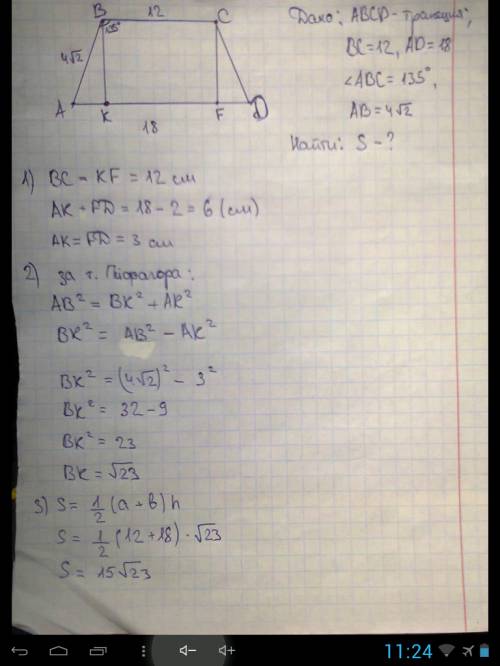 B 12 C
135°
4√2
A K F D
18
Дано: ABCD - трапеция;
BC=12, AD=18
∠ABC = 135°,
AB=4√2
Найти: S-?
1) BC = KF = 12 см
AK + FD = 18 - 2 = 6 (см)
AK = FD = 3 см
2) за т. Піфагора:
AB² = BK² + AK²
BK² = AB² - AK²
BK² = (4√2)² - 3²
BK² = 32 - 9
BK² = 23
BK = √23
3) S = 1/2 (a + b) h
S = 1/2 (12+18) · √23
S = 15√23
11:24